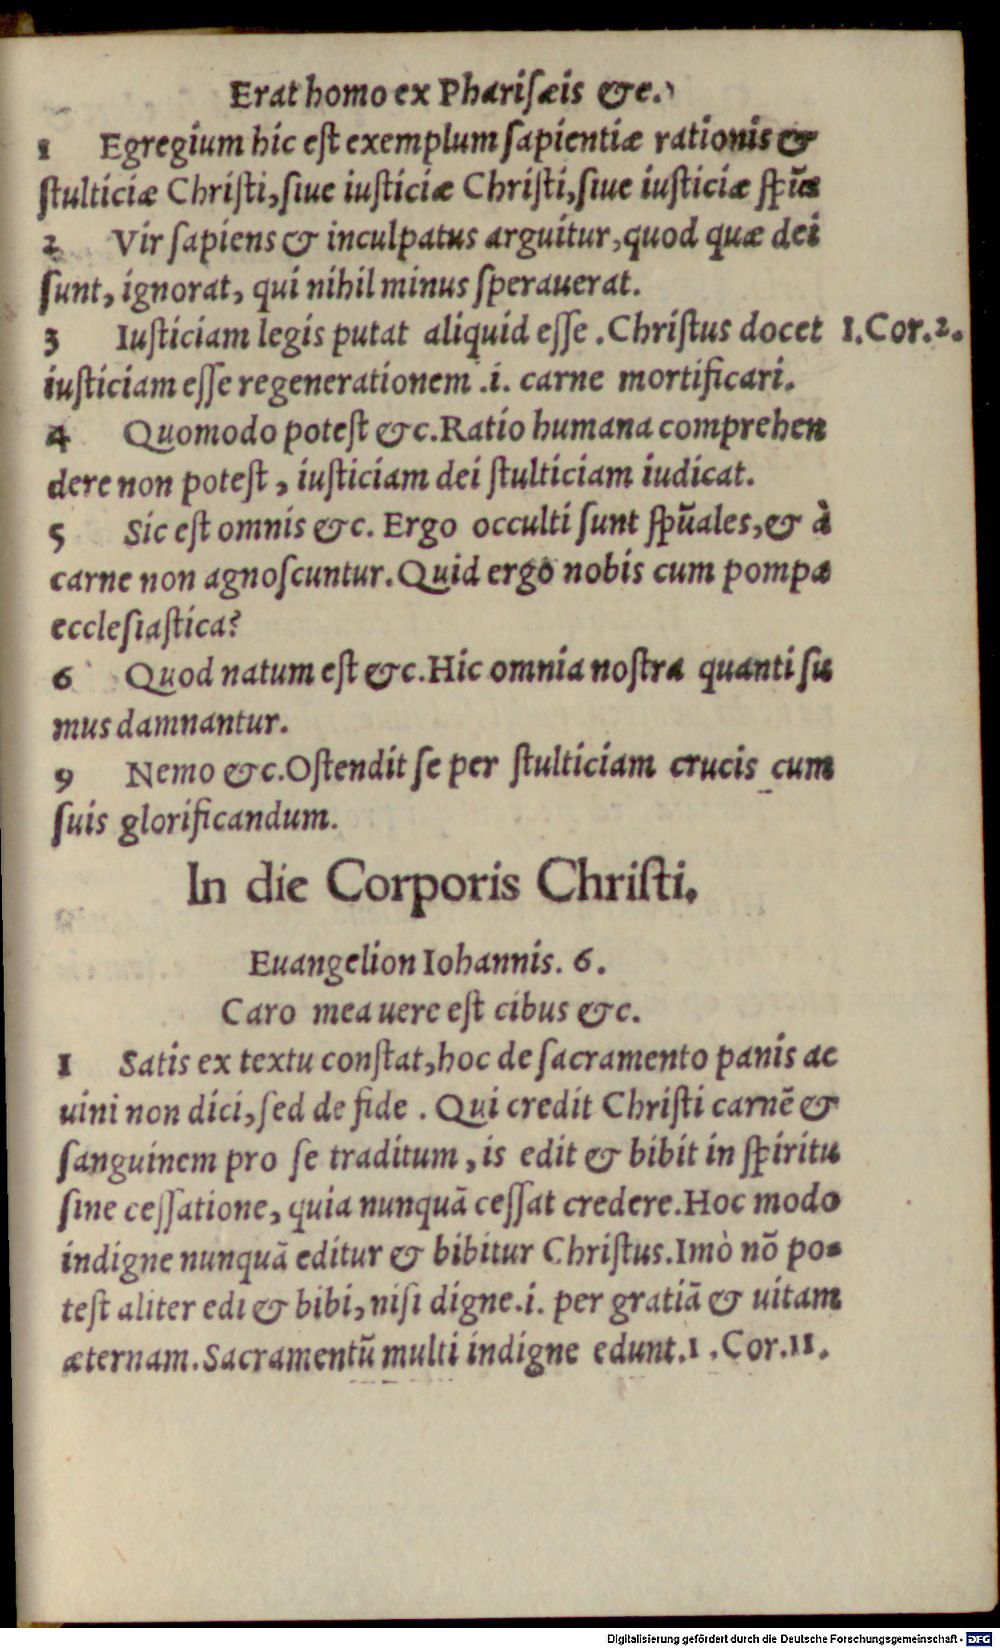 Erat homo ex Phariſæis &c.
1 Egregium hic eſt exemplum ſapientiæ rationis &
ſtulticiæ Chriſti, ſiue iuſticiæ Chriſti, ſiue iuſticiæ ſpũs
2 Vir ſapiens & inculpatus arguitur, quod quæ dei
ſunt, ignorat, qui nihil minus ſperauerat.
3 Iuſticiam legis putat aliquid eſſe. Chriſtus docet 1. Cor. 2.
iuſticiam eſſe regenerationem .i. carne mortificari.
4 Quomodo poteſt &c. Ratio humana comprehen
dere non poteſt, iuſticiam dei ſtulticiam iudicat.
5 Sic eſt omnis &c. Ergo occulti ſunt ſpũales, & à
carne non agnoſcuntur. Quid ergo nobis cum pompa
eccleſiaſtica?
6 Quod natum eſt &c. Hic omnia noſtra quanti ſu
mus damnantur.
9 Nemo &c. Oſtendit ſe per ſtulticiam crucis cum
ſuis glorificandum.
In die Corporis Chriſti.
Euangelion Iohannis. 6.
Caro mea uere eſt cibus &c.
1 Satis ex textu conſtat, hoc de ſacramento panis ac
uini non dici, ſed de fide. Qui credit Chriſti carnē &
ſanguinem pro ſe traditum, is edit & bibit in ſpiritu
ſine ceſſatione, quia nunquā ceſſat credere. Hoc modo
indigne nunquā editur & bibitur Chriſtus. Imò nō po-
teſt aliter edi & bibi, niſi digne .i. per gratiā & uitam
æternam. Sacramentũ multi indigne edunt. 1. Cor. 11.
Digitalisierung gefördert durch die Deutsche Forschungsgemeinschaft - DFG